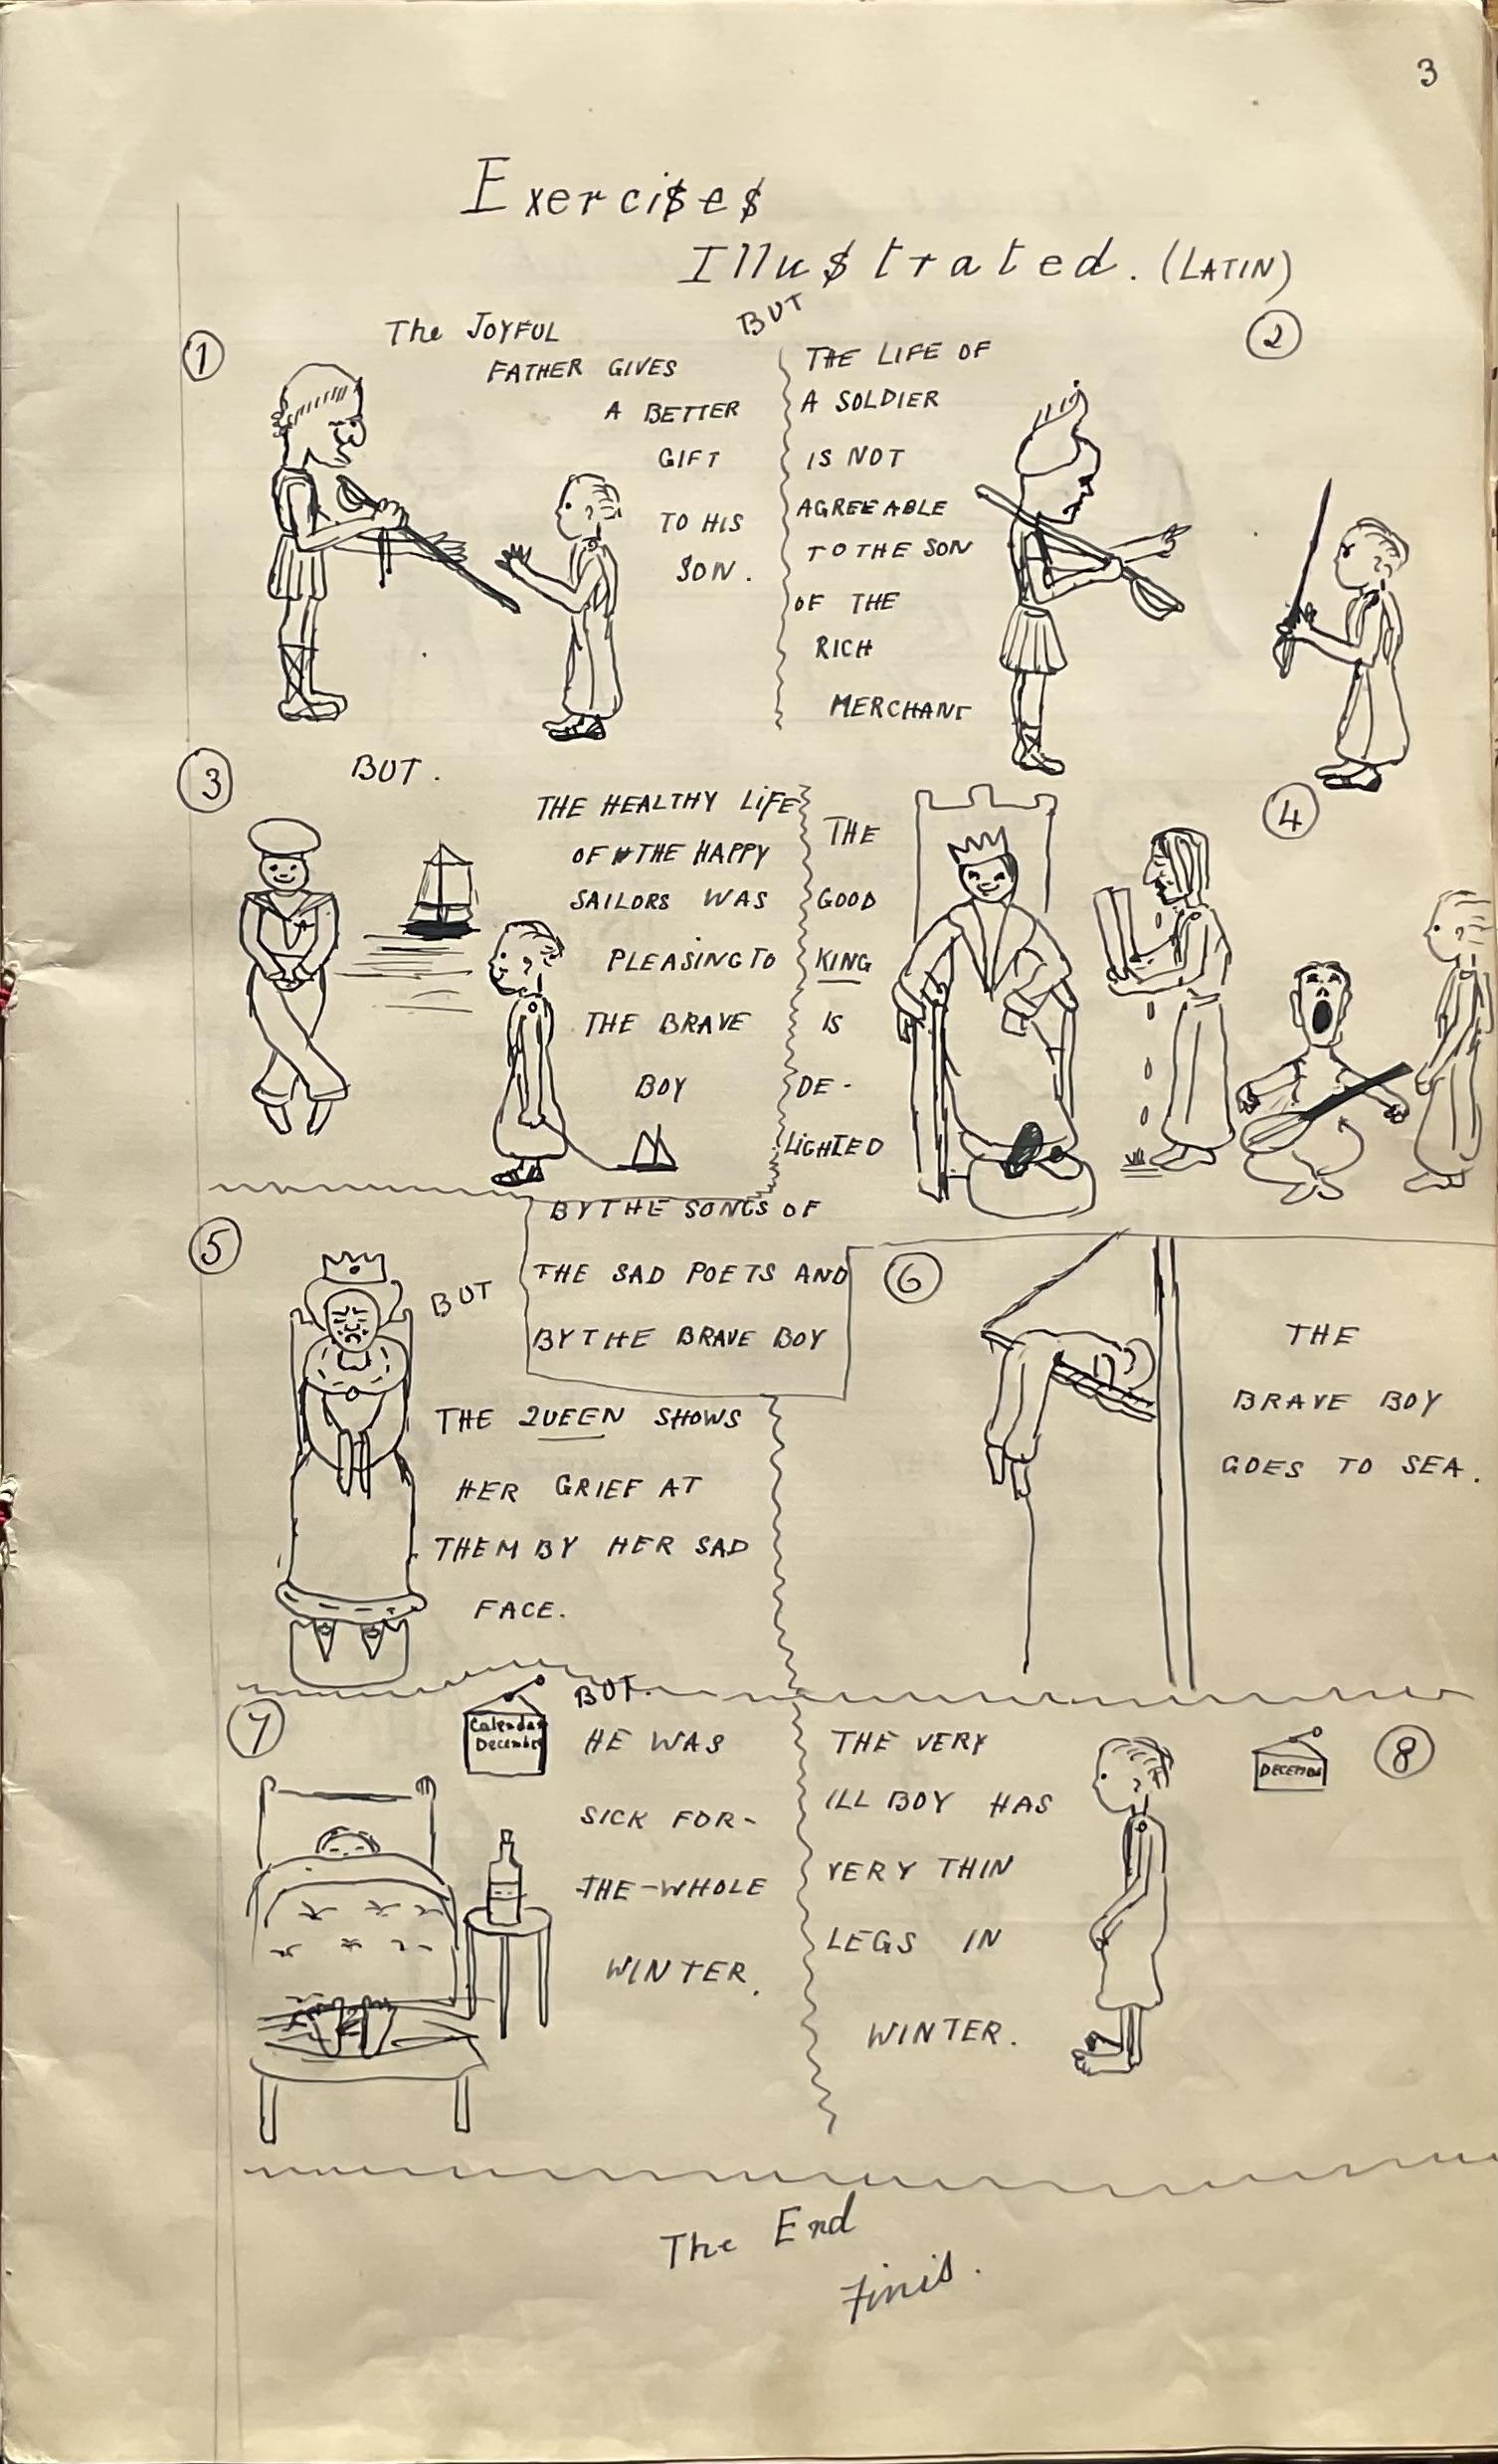 3
Exercises
Illustrated. (LATIN)
1
The JOYFUL
FATHER GIVES
A BETTER
GIFT
TO HIS
SON.
BUT
2
THE LIFE OF
A SOLDIER
IS NOT
AGREEABLE
TO THE SON
OF THE
RICH
MERCHANT
3
BUT.
THE HEALTHY LIFE
OF THE HAPPY
SAILORS WAS
PLEASING TO
THE BRAVE
BOY
4
THE
GOOD
KING
IS
DE-
LIGHTED
BY THE SONGS OF
THE SAD POETS AND
BY THE BRAVE BOY
5
BUT
THE QUEEN SHOWS
HER GRIEF AT
THEM BY HER SAD
FACE.
6
THE
BRAVE BOY
GOES TO SEA.
7
Calendar
December
BUT.
HE WAS
SICK FOR-
THE-WHOLE
WINTER.
8
THE VERY
ILL BOY HAS
VERY THIN
LEGS IN
WINTER.
The End
Finis.